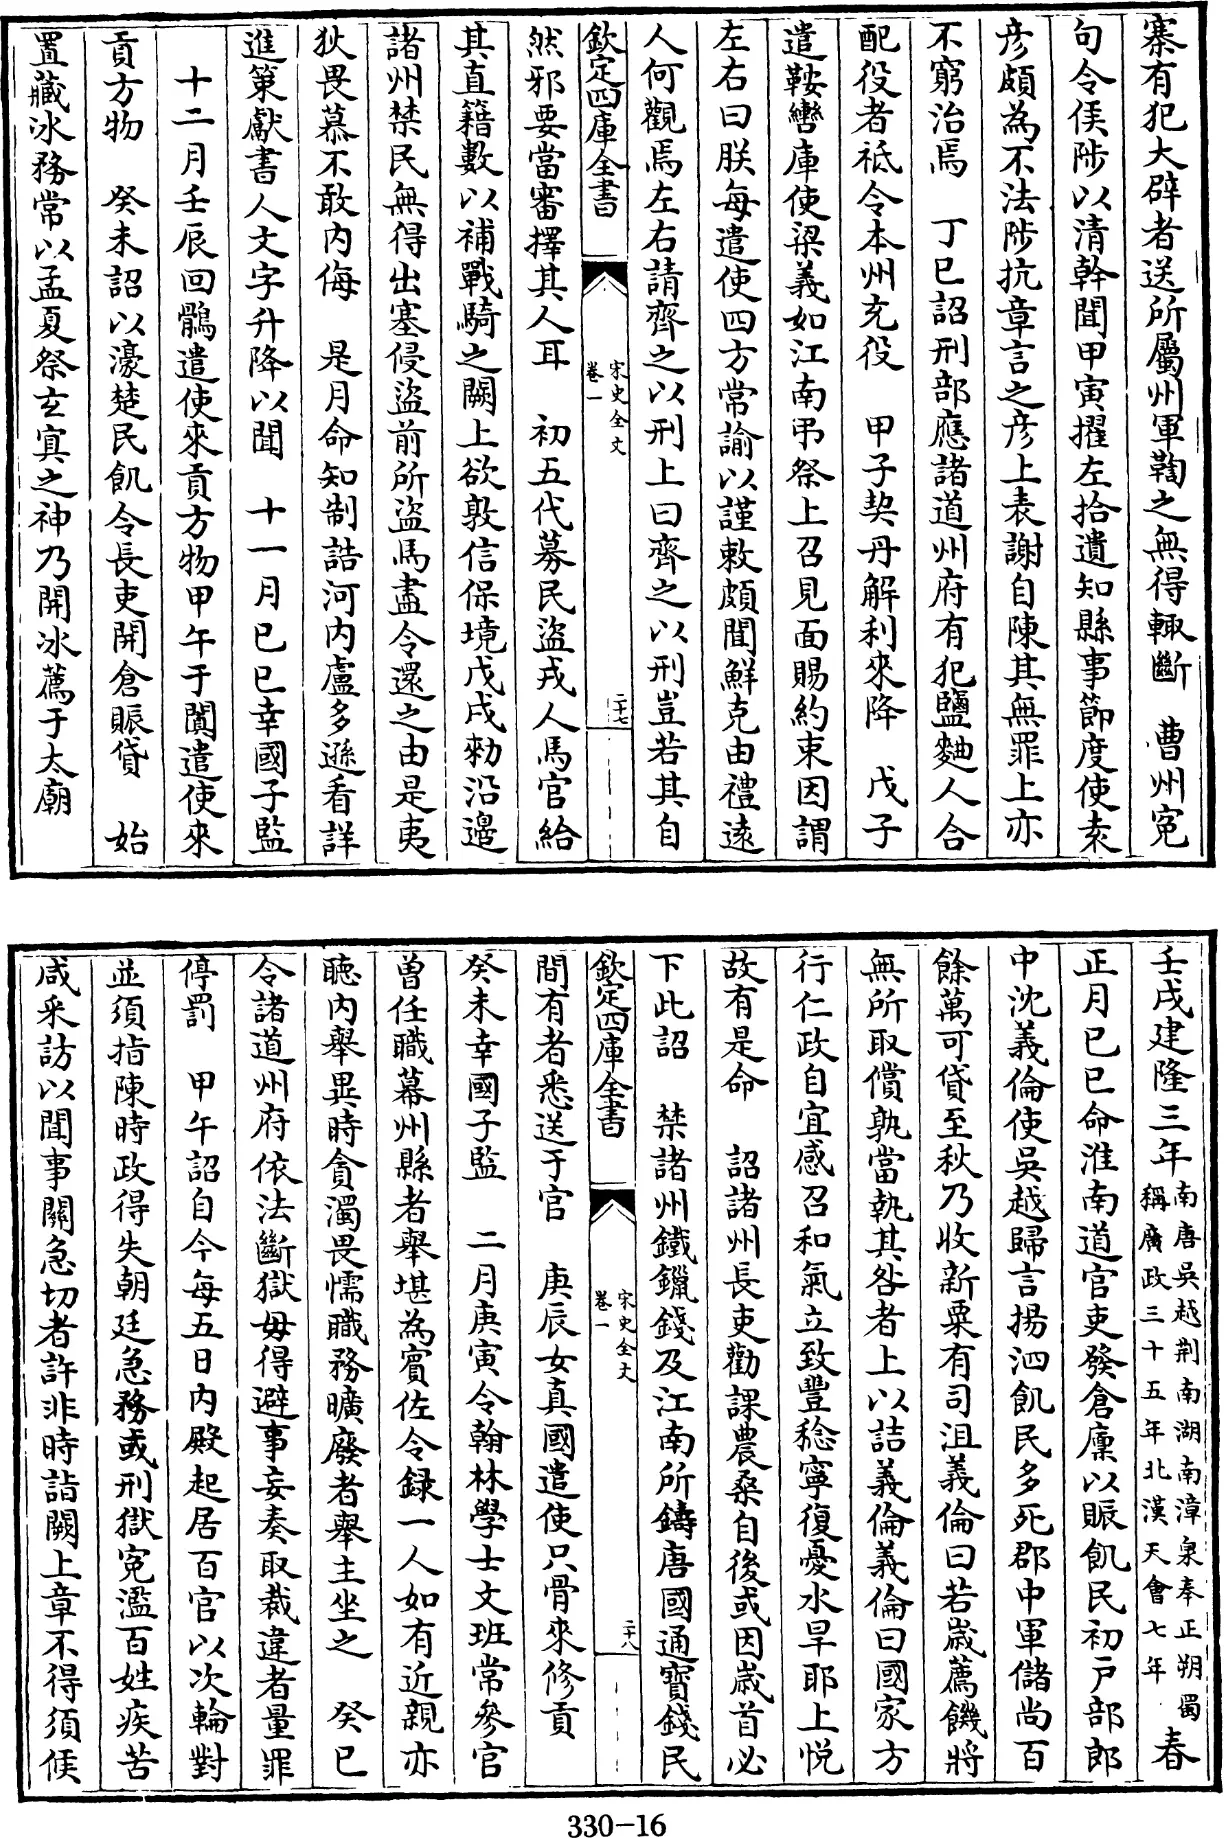 寨有犯大辟者送所屬州軍鞫之無得輙斷　曹州寃
句令侯陟以清幹聞甲寅擢左拾遺知縣事節度使袁
彦頗為不法陟抗章言之彦上表謝自陳其無罪上亦
不窮治焉　丁巳詔刑部應諸道州府有犯鹽麯人合
配役者祇令本州充役　甲子契丹解利來降　戊子
遣鞍轡庫使梁義如江南弔祭上召見面賜約束因謂
左右曰朕每遣使四方常諭以謹敕頗聞鮮克由禮遠
人何觀焉左右請齊之以刑上曰齊之以刑豈若其自
欽定四庫全書
宋史全文
卷一
二十七
然邪要當審擇其人耳　初五代募民盜戎人馬官給
其直籍數以補戰騎之闕上欲敦信保境戊戌勑沿邊
諸州禁民無得出塞侵盜前所盜馬盡令還之由是夷
狄畏慕不敢内侮　是月命知制誥河内盧多遜看詳
進策獻書人文字升降以聞　十一月己巳幸國子監
十二月壬辰回鶻遣使來貢方物甲午于闐遣使來
貢方物　癸未詔以濠楚民飢令長吏開倉賑貸　始
置藏冰務常以孟夏祭玄冥之神乃開冰薦于太廟
壬戌建隆三年南唐吳越荆南湖南漳泉奉正朔蜀
稱廣政三十五年北漢天會七年春
正月己巳命淮南道官吏發倉廩以賑飢民初戸部郎
中沈義倫使吳越歸言揚泗飢民多死郡中軍儲尚百
餘萬可貸至秋乃收新粟有司沮義倫曰若歲薦饑將
無所取償孰當執其咎者上以詰義倫義倫曰國家方
行仁政自宜感召和氣立致豐稔寧復憂水旱耶上悦
故有是命　詔諸州長吏勸課農桑自後或因歲首必
下此詔　禁諸州鐵鑞錢及江南所鑄唐國通寳錢民
欽定四庫全書
宋史全文
卷一
二十八
間有者悉送于官　庚辰女真國遣使只骨來修貢
癸未幸國子監　二月庚寅令翰林學士文班常參官
曽任職幕州縣者舉堪為賓佐令録一人如有近親亦
聴内舉異時貪濁畏懦職務曠廢者舉主坐之　癸巳
令諸道州府依法斷獄毋得避事妄奏取裁違者量罪
停罰　甲午詔自今每五日内殿起居百官以次輪對
並須指陳時政得失朝廷急務或刑獄寃濫百姓疾苦
咸采訪以聞事關急切者許非時詣闕上章不得須候
330-16